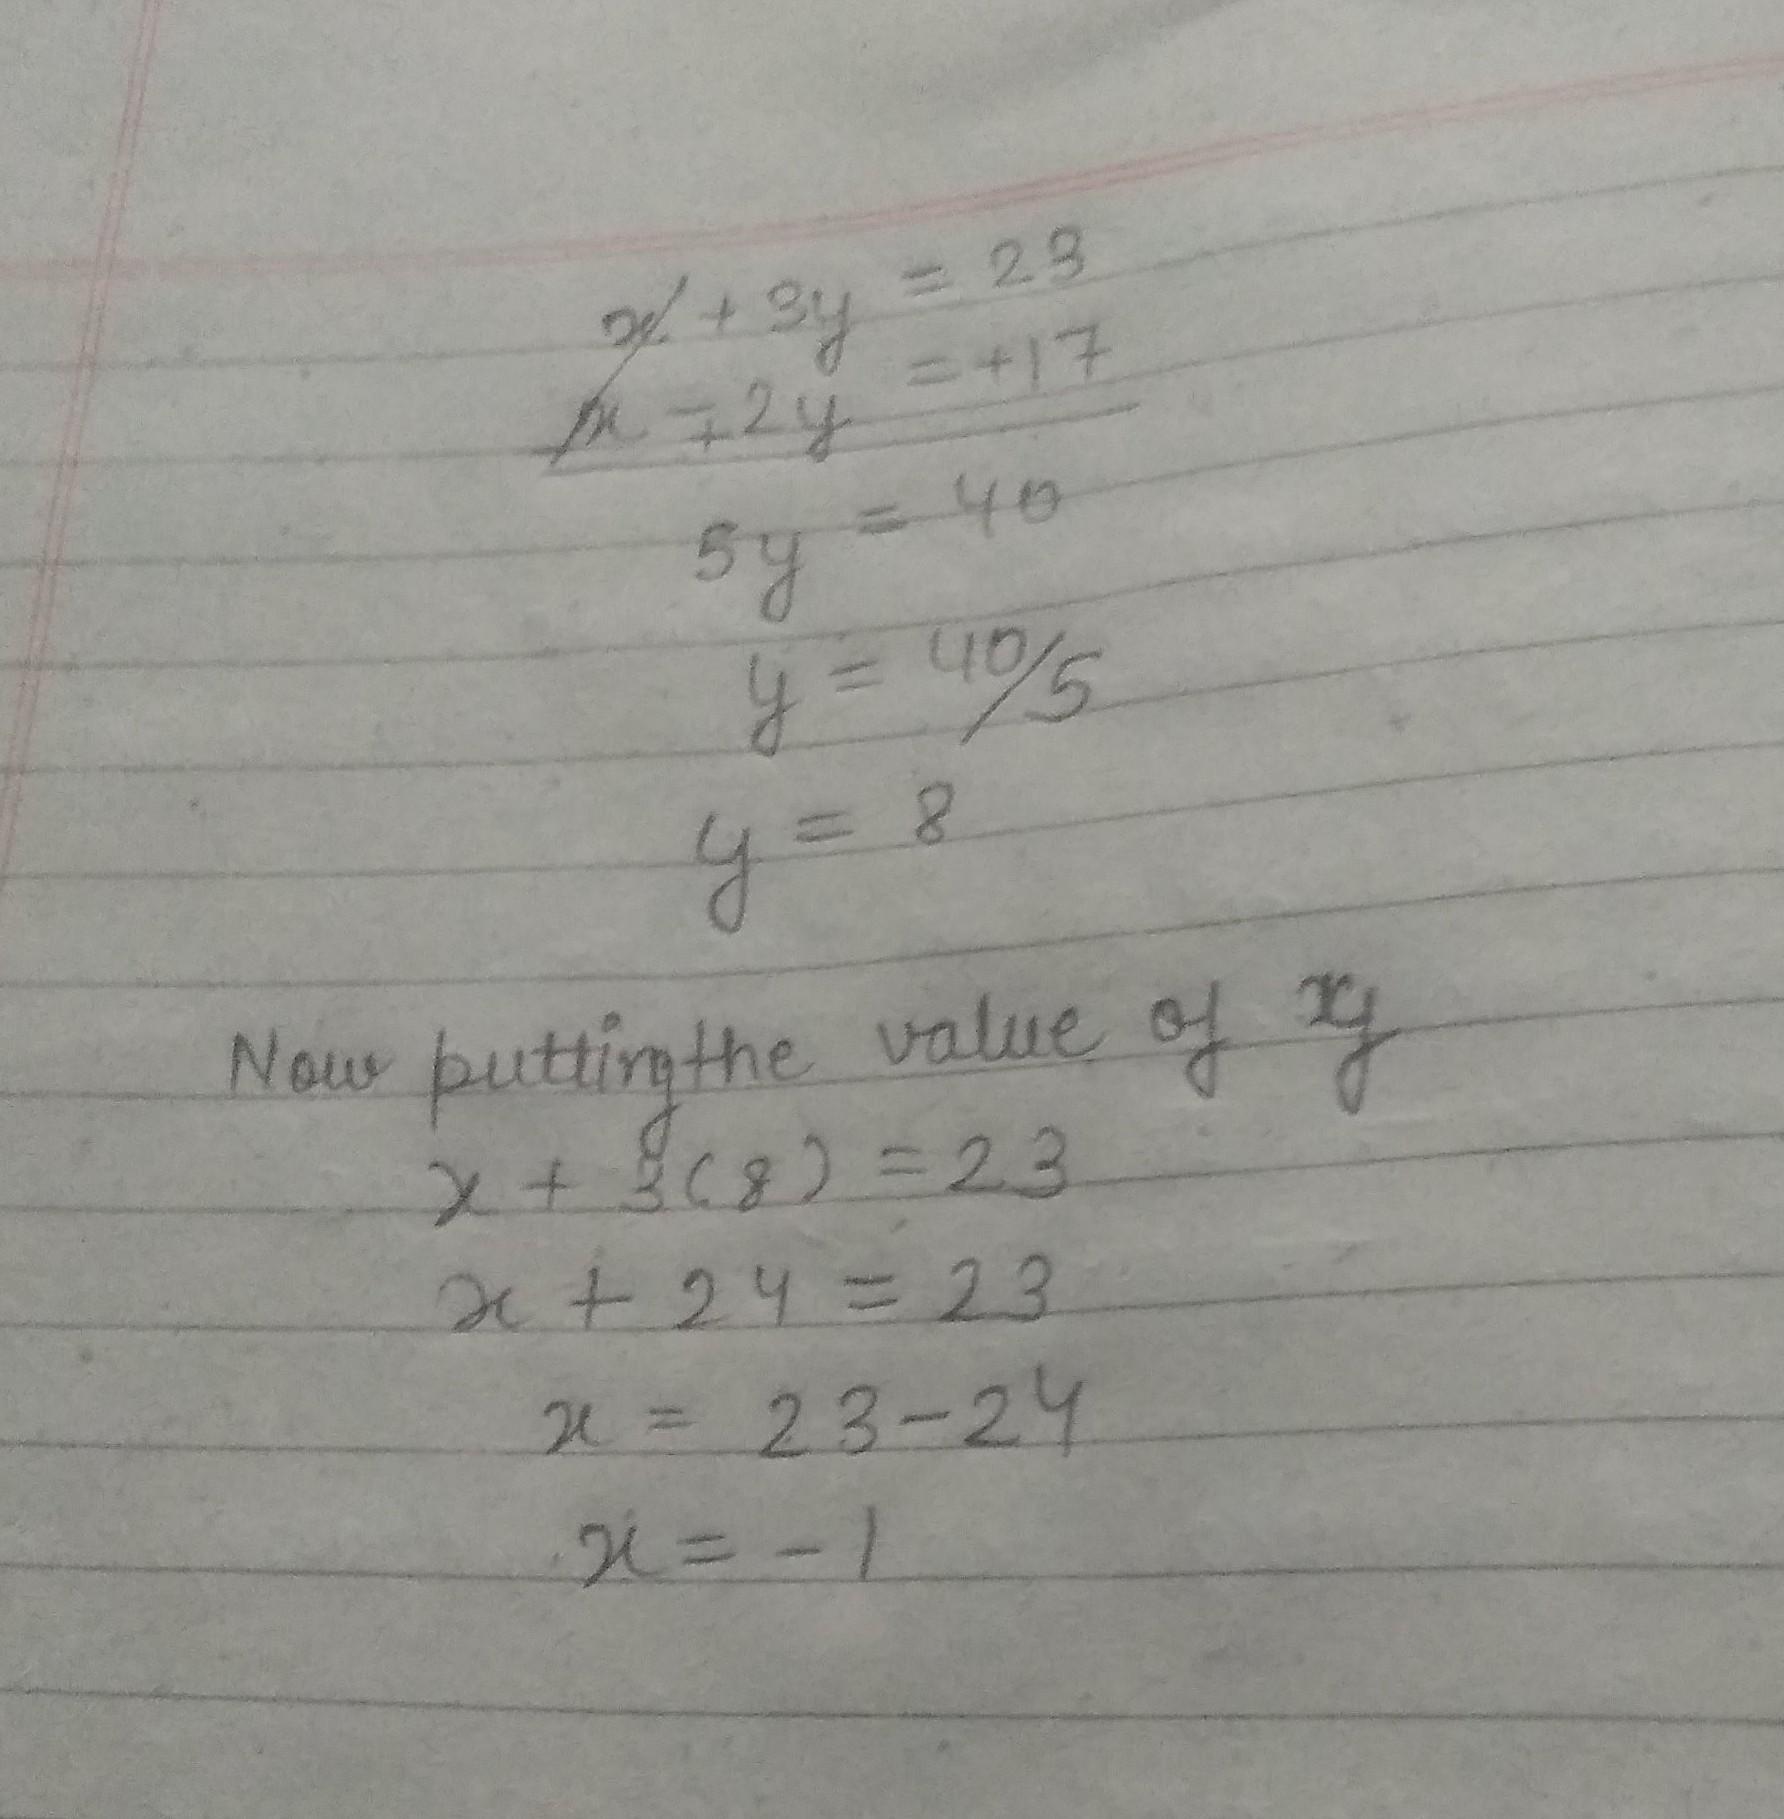 x + 3y = 23
x - + 2y = +17
5y = 40
y = 40/5
y = 8
Now putting the value of y
x + 3(8) = 23
x + 24 = 23
x = 23 - 24
x = -1